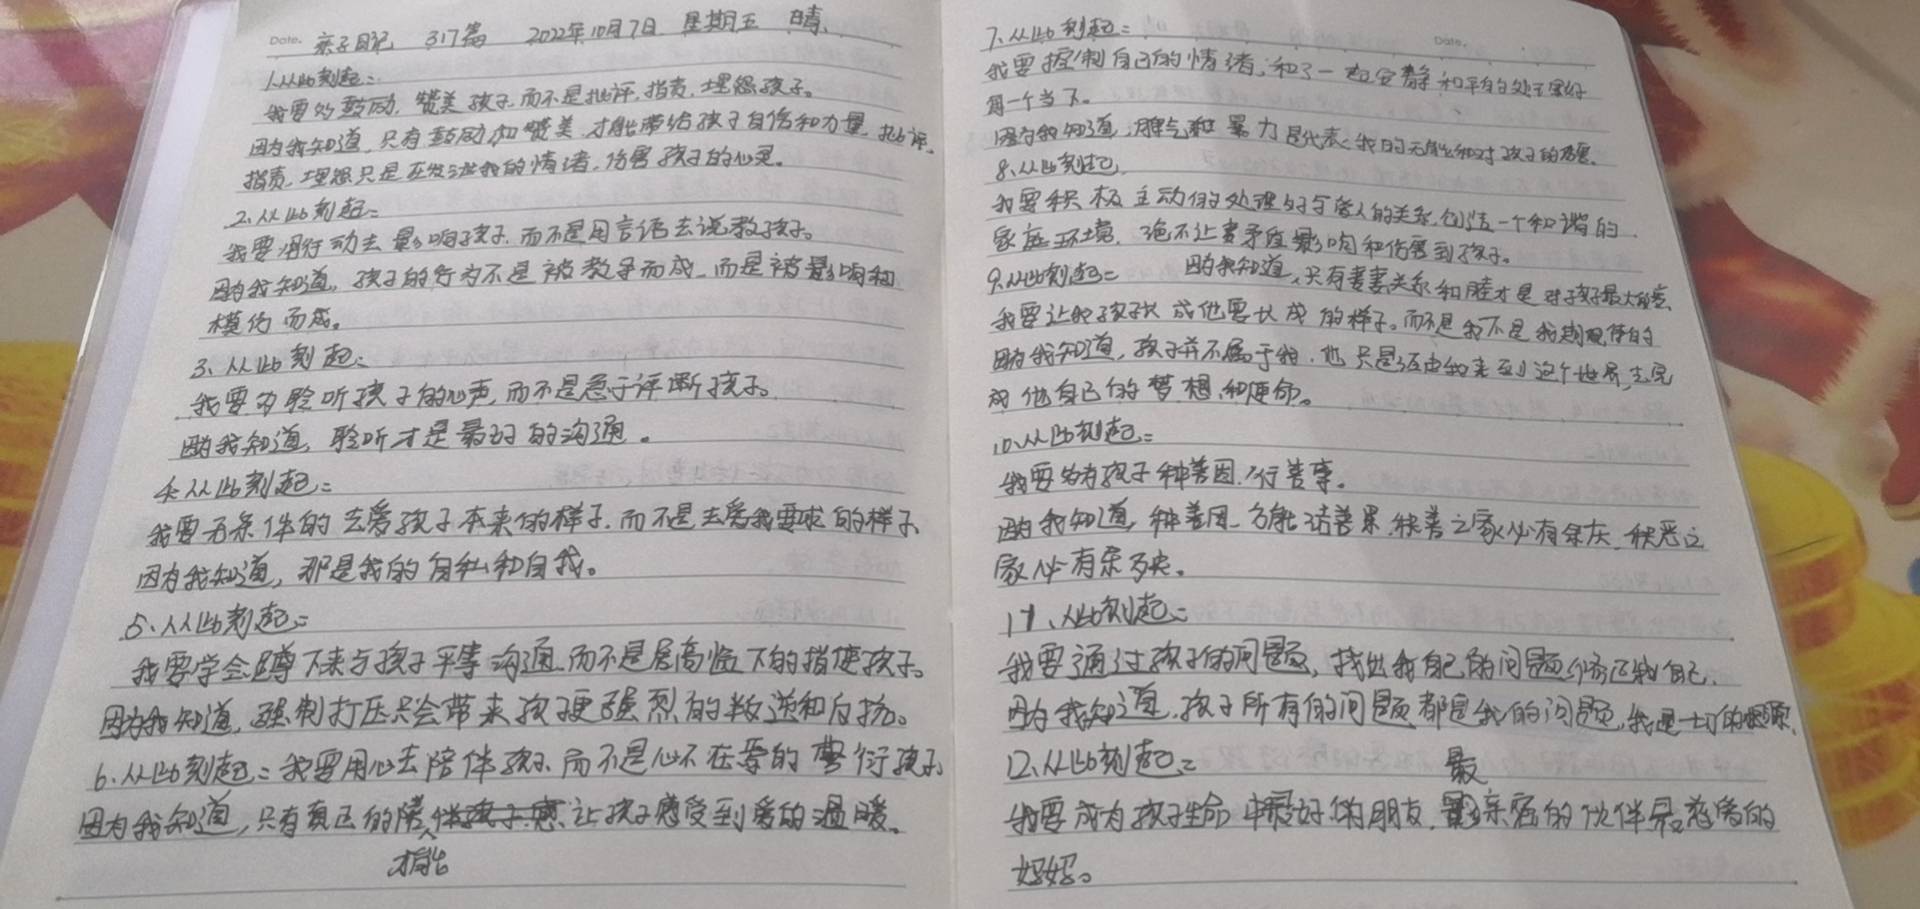 Date. 亲子日记 317篇 2022年10月7日 星期五 晴
1.从此刻起:
我要多鼓励、赞美孩子,而不是批评,指责,埋怨孩子。
因为我知道,只有鼓励和赞美,才能带给孩子自信和力量,批评、
指责、埋怨只是在发泄我的情绪,伤害孩子的心灵。
2、从此刻起:
我要用行动去影响孩子,而不是用言语去说教孩子。
因为我知道,孩子的行为不是被教导而成,而是被影响和
模仿而成。
3、从此刻起:
我要多聆听孩子的心声,而不是急于评断孩子。
因为我知道,聆听才是最好的沟通。
4.从此刻起:
我要无条件的去爱孩子本来的样子,而不是去爱我要求的样子
因为我知道,那是我的自私和自我。
5、从此刻起:
我要学会蹲下来与孩子平等沟通,而不是居高临下的指使孩子。
因为我知道,强制打压只会带来孩子更强烈的叛逆和反抗。
6.从此刻起:我要用心去陪伴孩子,而不是心不在焉的敷衍孩子
因为我知道,只有真正的陪伴才能让孩子感受到爱的温暖。
7、从此刻起:
Date.
我要控制自己的情绪,和孑一起安静和平的处理好
每一个当下。
因为我知道,脾气和暴力是代表我的无能和对孩子的伤害。
8、从此刻起,
我要积极主动的处理好与家人的关系,创造一个和谐的
家庭环境,绝不让矛盾影响和伤害到孩子。
因为我知道,只有夫妻关系和睦才是对孩子最大的爱、
9.从此刻起:
我要让孩子长成他要长成的样子。而不是我不是我期待的
因为我知道,孩子并不属于我,他只是经由我来到这个世界,去完
成他自己的梦想和使命。
10、从此刻起:
我要多为孩子种善因,行善事。
因为我知道,种善因,方能结善果,积善之家必有余庆,积恶之
家必有余殃。
11、从此刻起:
我要通过孩子的问题,找出我自己的问题,修正我自己、
因为我知道,孩子所有的问题都是我的问题,我是一切的根源、
12、从此刻起:
我要成为孩子生命中最好的朋友,最亲密的伙伴,最慈爱的
妈妈。